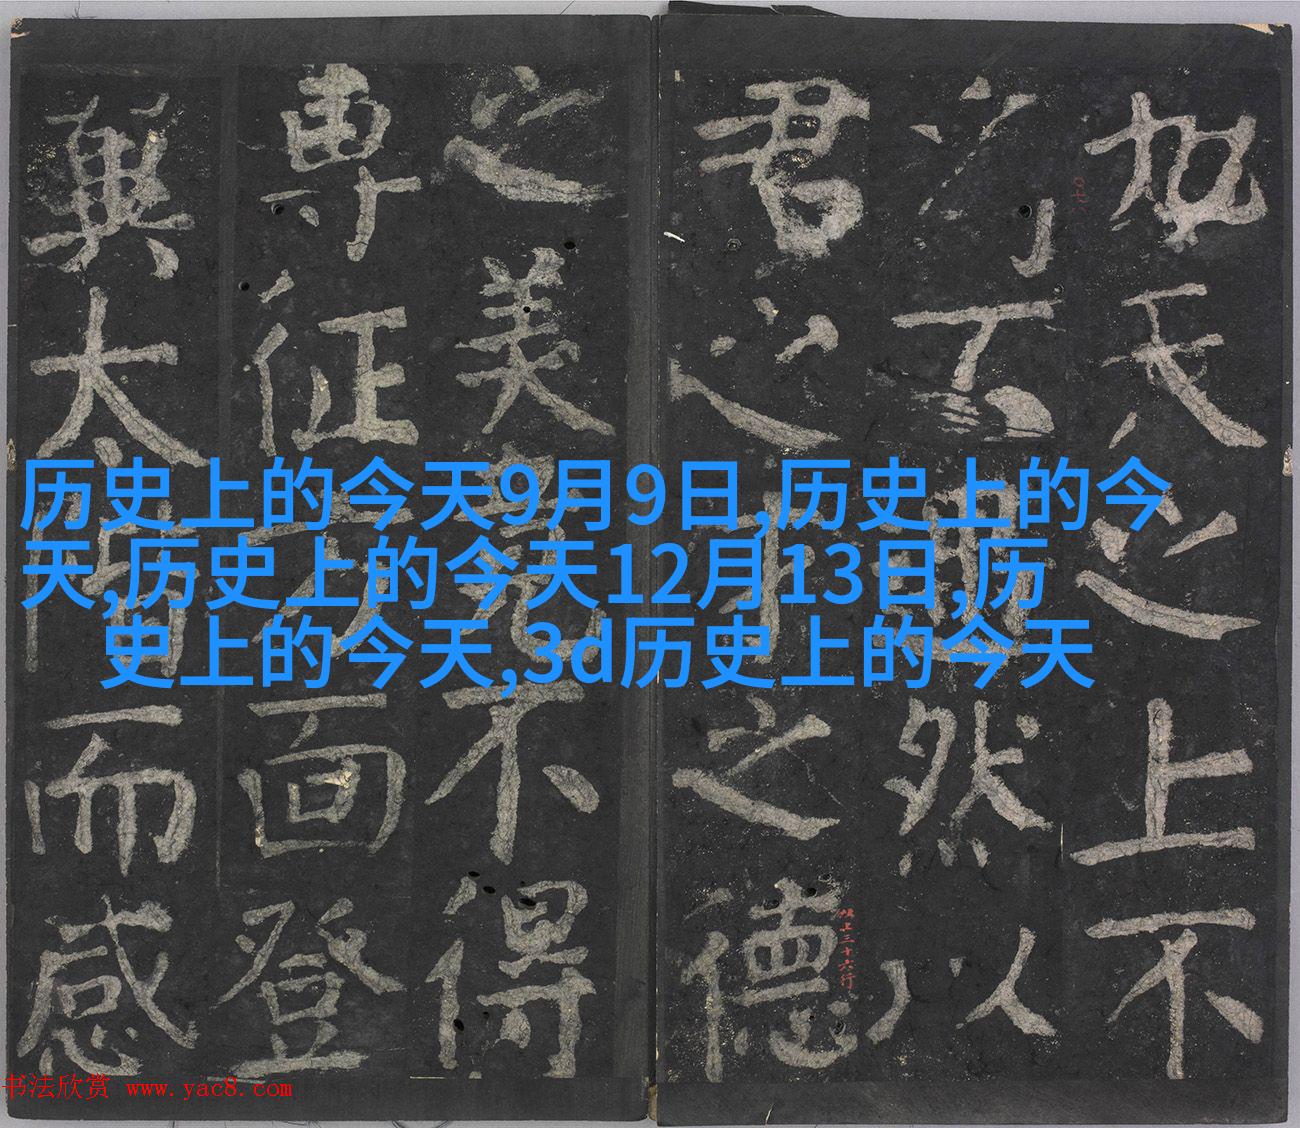 历史上的今天9月9日,历史上的今
天,历史上的今天12月13日,历
史上的今天,3d历史上的今天
如天之上不
然以
君之之德
之美不得
專征面登
太階而感
上三十六行
书法欣赏 www.yac8.com